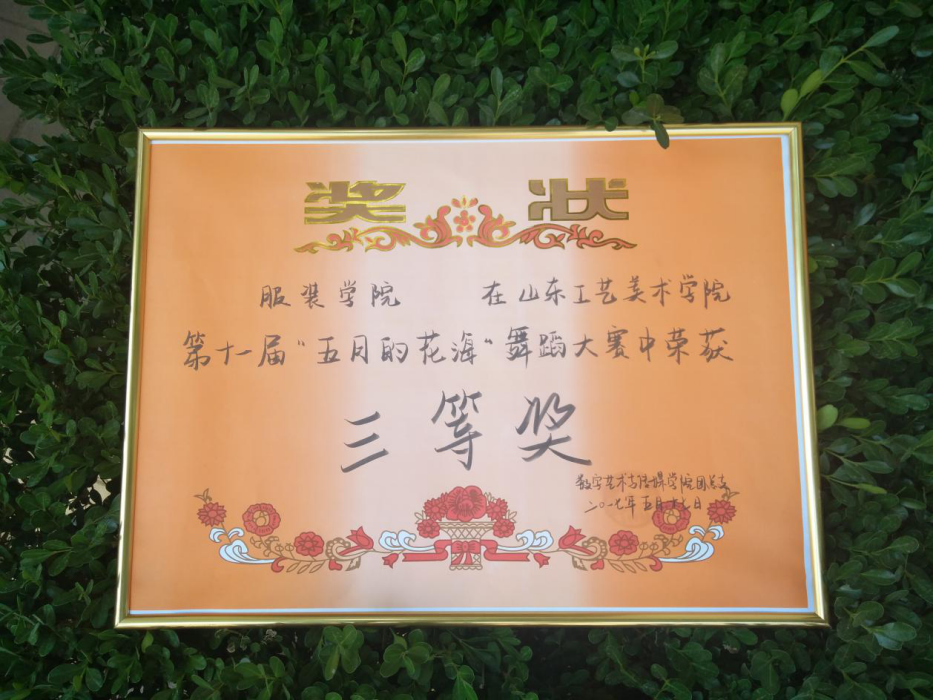 奖 状
服装学院 在山东工艺美术学院
第十一届“五月的花海“舞蹈大赛中荣获
三等奖
数字艺术与传媒学院团总支
二〇一七年五月十七日